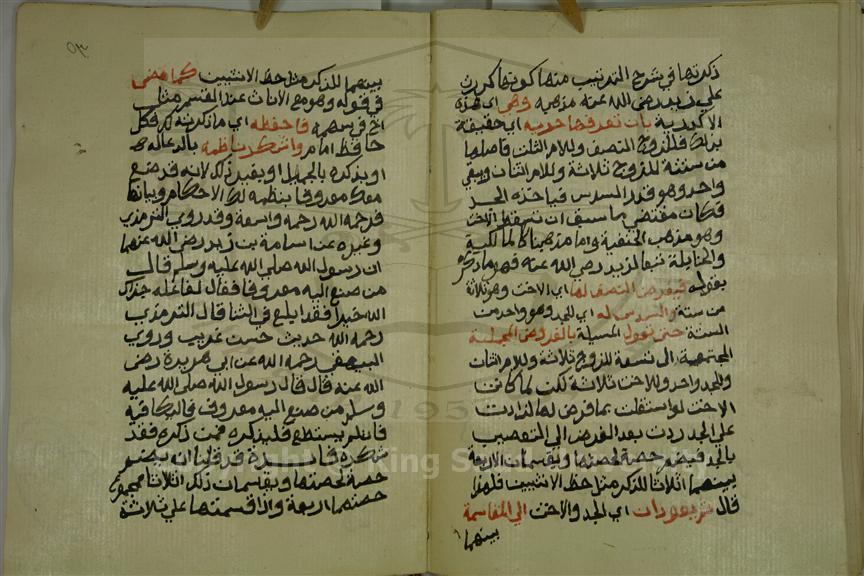 ذكرتها في شرح الترتيب منها كونها كدرت
علي زيد رضي الله عنه مذهبه وهي اي هذه
الاكدرية بان تعرفها حرية اي حقيقة
بذلك فللزوج النصف وللام الثلث فاصلها
من ستة للزوج ثلاثة وللام اثنان ويبقي
واحد وهو قدر السدس فياخذه الجد
فكان مقتضي ما سبق ان تسقط الاخت
وهو مذهب الحنفية واما مذهبنا كالمالكية
والحنابلة تبعا لزيد رضي الله عنه فهو ما ذكره
بقوله فيفرض النصف لها اي الاخت وهو ثلاثة
من ستة والسدس له اي للجد وهو واحد من
الستة حتي تعول المسيلة بالفروض المجملة
المجتمعة الي تسعة للزوج ثلاثة وللام اثنان
وللجد واحد وللاخت ثلاثة لكن لما كانت
الاخت لو استقلت بما فرض لها لزادت
علي الجد ردت بعد الفرض الي التعصيب
بالجد فيضم حصته لحصتها ويقسمان الاربعة
بينهما اثلاثا للذكر مثل حظ الانثيين فلهذا
قال ثم يعودان اي الجد والاخت الي المقاسمة
بينهما
٥٣
بينهما للذكر مثل حظ الانثيين كما مضي
في قوله وهو مع الاناث عند القسم مثل
اخ في سهمه فاحفظه اي ما ذكرته لك فكل
حافظ امام واشكر ناظمه بالدعاء له
او بذكره بالجميل او بغير ذلك لانه قد صنع
معك معروفا بنظمه لك الاحكام وبيانها
فرحمه الله رحمة واسعة وقد روي الترمذي
وغيره عن اسامة بن زيد رضي الله عنهما
ان رسول الله صلي الله عليه وسلم قال
من صنع اليه معروفا فقال لفاعله جزاك
الله خيرا فقد ابلغ في الثنا قال الترمذي
رحمه الله حديث حسن غريب وروي
البيهقي رحمه الله عن ابي هريرة رضي
الله عنه قال قال رسول الله صلي الله عليه
وسلم من صنع اليه معروف فليكافيه
فان لم يستطع فليذكره فمن ذكره فقد
شكره فايدة قد قلنا ان يضم
حصته لحصتها ويقسمان ذلك اثلاثا فمجموع
حصتهما اربعة واذا قسمتها علي ثلاثة